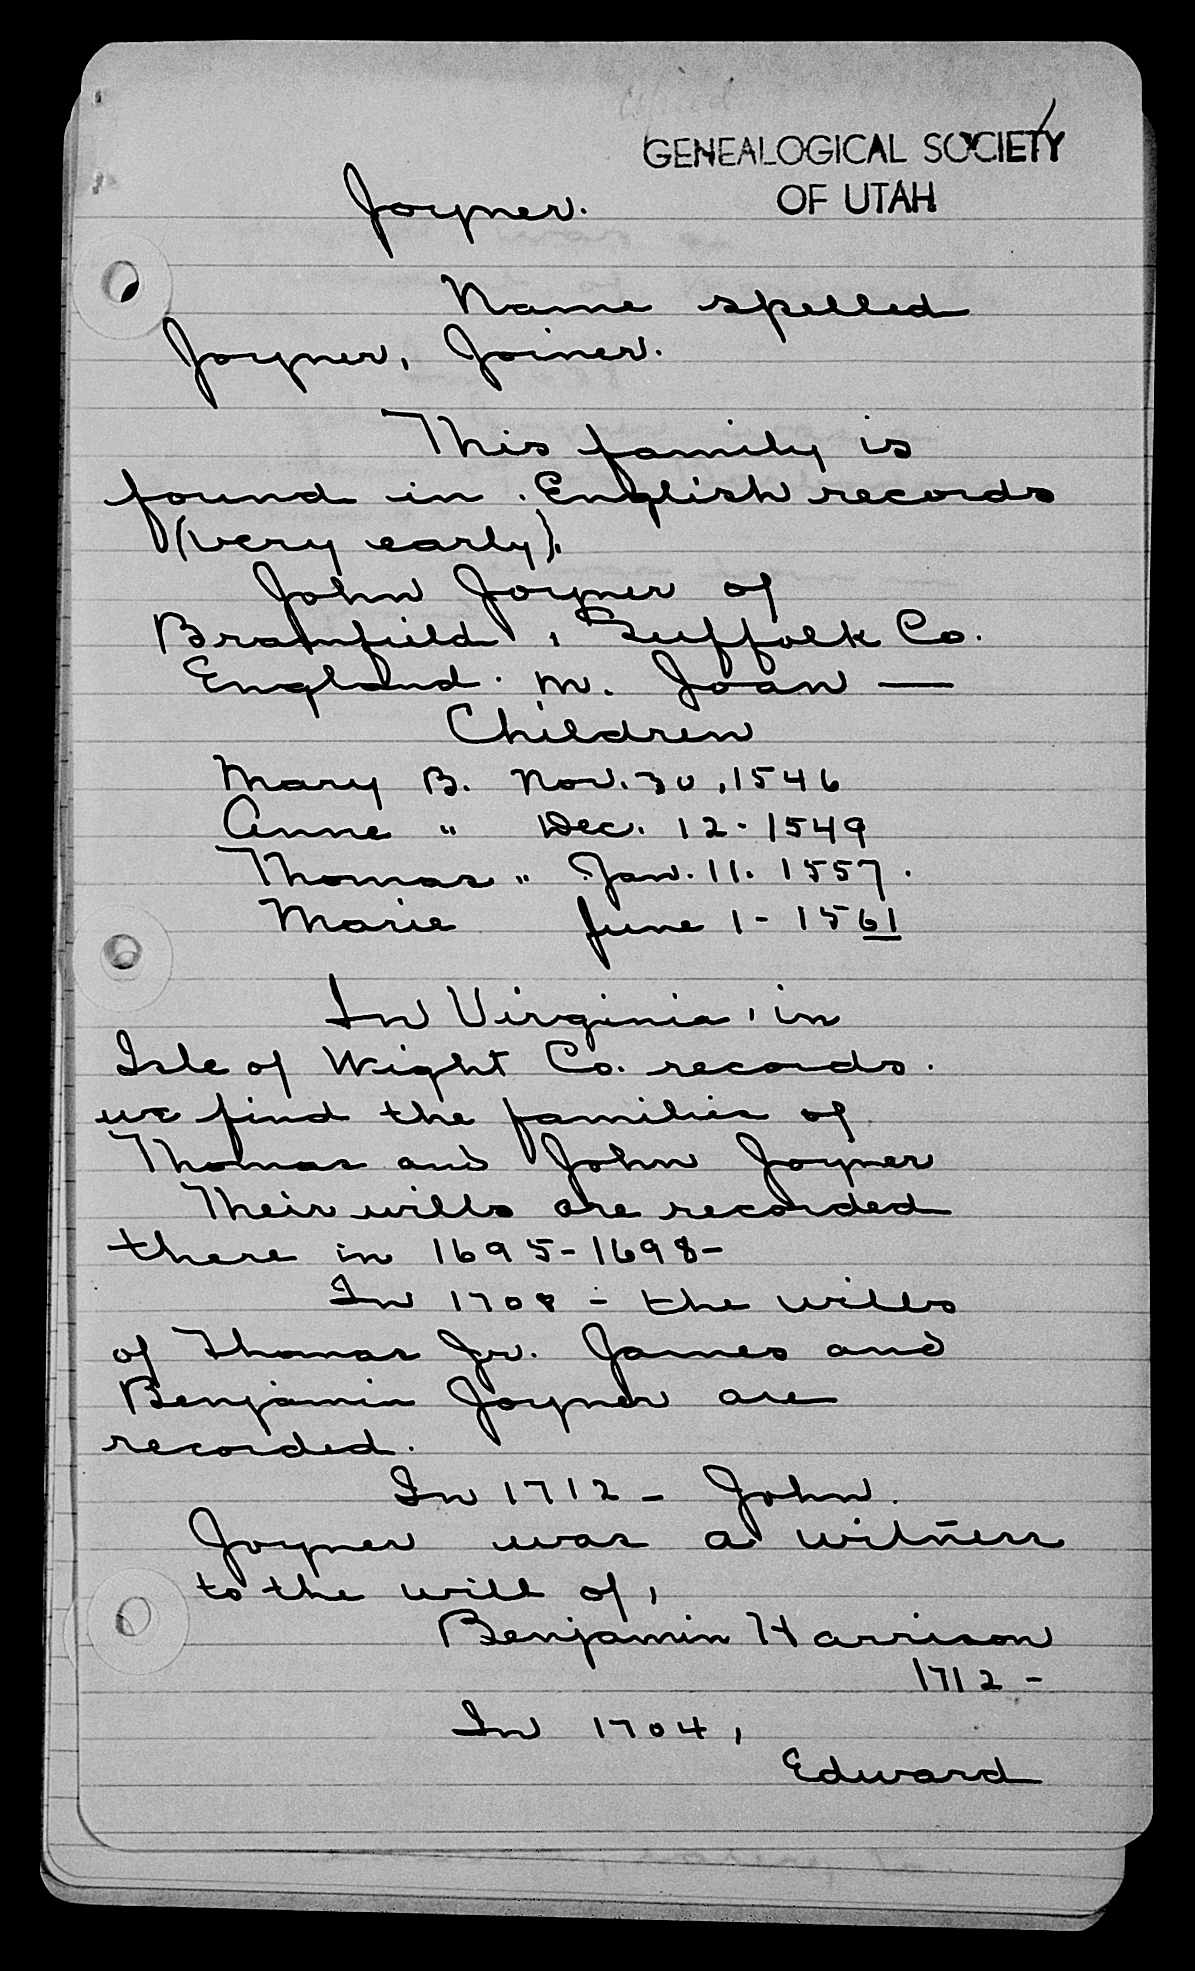 GENEALOGICAL SOCIETY
OF UTAH
Joyner.
Name spelled
Joyner, Joiner.
This family is
found in English records
(very early).
John Joyner of
Bramfield, Suffolk Co.
England. m. Joan —
Children
Mary B. Nov. 30, 1546
Anne " Dec. 12. 1549
Thomas " Jan. 11. 1557.
Marie June 1 - 1561
In Virginia, in
Isle of Wight Co. records.
we find the families of
Thomas and John Joyner
Their wills are recorded
there in 1695-1698-
In 1708 - the wills
of Thomas Jr. James and
Benjamin Joyner are
recorded.
In 1712 - John.
Joyner was a witness
to the will of,
Benjamin Harrison
1712 -
In 1704,
Edward